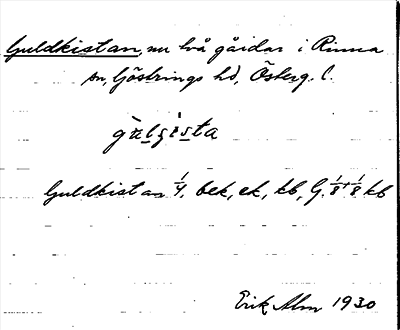 Guldkistan, nu två gårdar i Rinna
sn, Göstrings hd, Österg. l.
gu̇lʒɩsta
Guldkistan 1/4, bek, ek, kb, G. 1/8+1/8 kb
Erik Alm 1930